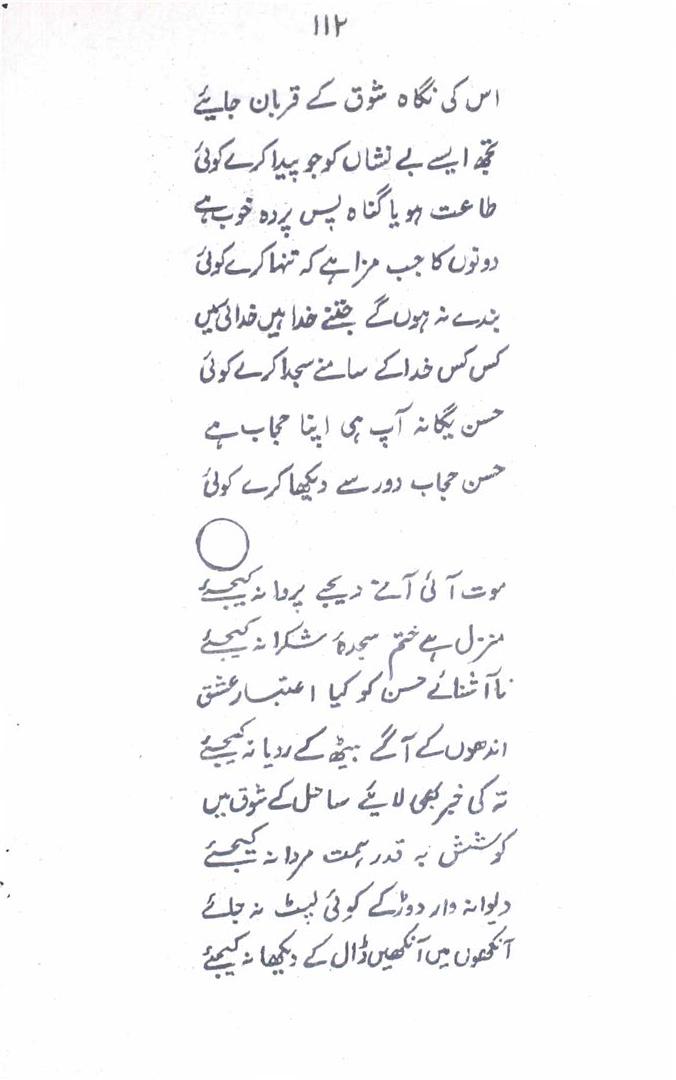 ۱۱۲
اس کی نگاہ شوق کے قربان جایئے
تجھ ایسے بے نشاں کو جو پیدا کرے کوئی
طاعت ہو یا گناہ پس پردہ خوب ہے
دونوں کا جب مزا ہے کہ تنہا کرے کوئی
بندے نہ ہوں گے جتنے خدا ہیں خدائی میں
کس کس خدا کے سامنے سجدا کرے کوئی
حسن یگانہ آپ ہی اپنا حجاب ہے
حسن حجاب دور سے دیکھا کرے کوئی
موت آئی آنے دیجے پروا نہ کیجئے
منزل ہے ختم سجدۂ شکرانہ کیجئے
ناآشنائے حسن کو کیا اعتبار عشق
اندھوں کے آگے بیٹھ کے رویا نہ کیجئے
تہ کی خبر بھی لایئے ساحل کے شوق میں
کوشش بہ قدر ہمت مردانہ کیجئے
دیوانہ وار دوڑ کے کوئی لپٹ نہ جائے
آنکھوں میں آنکھیں ڈال کے دیکھا نہ کیجئے